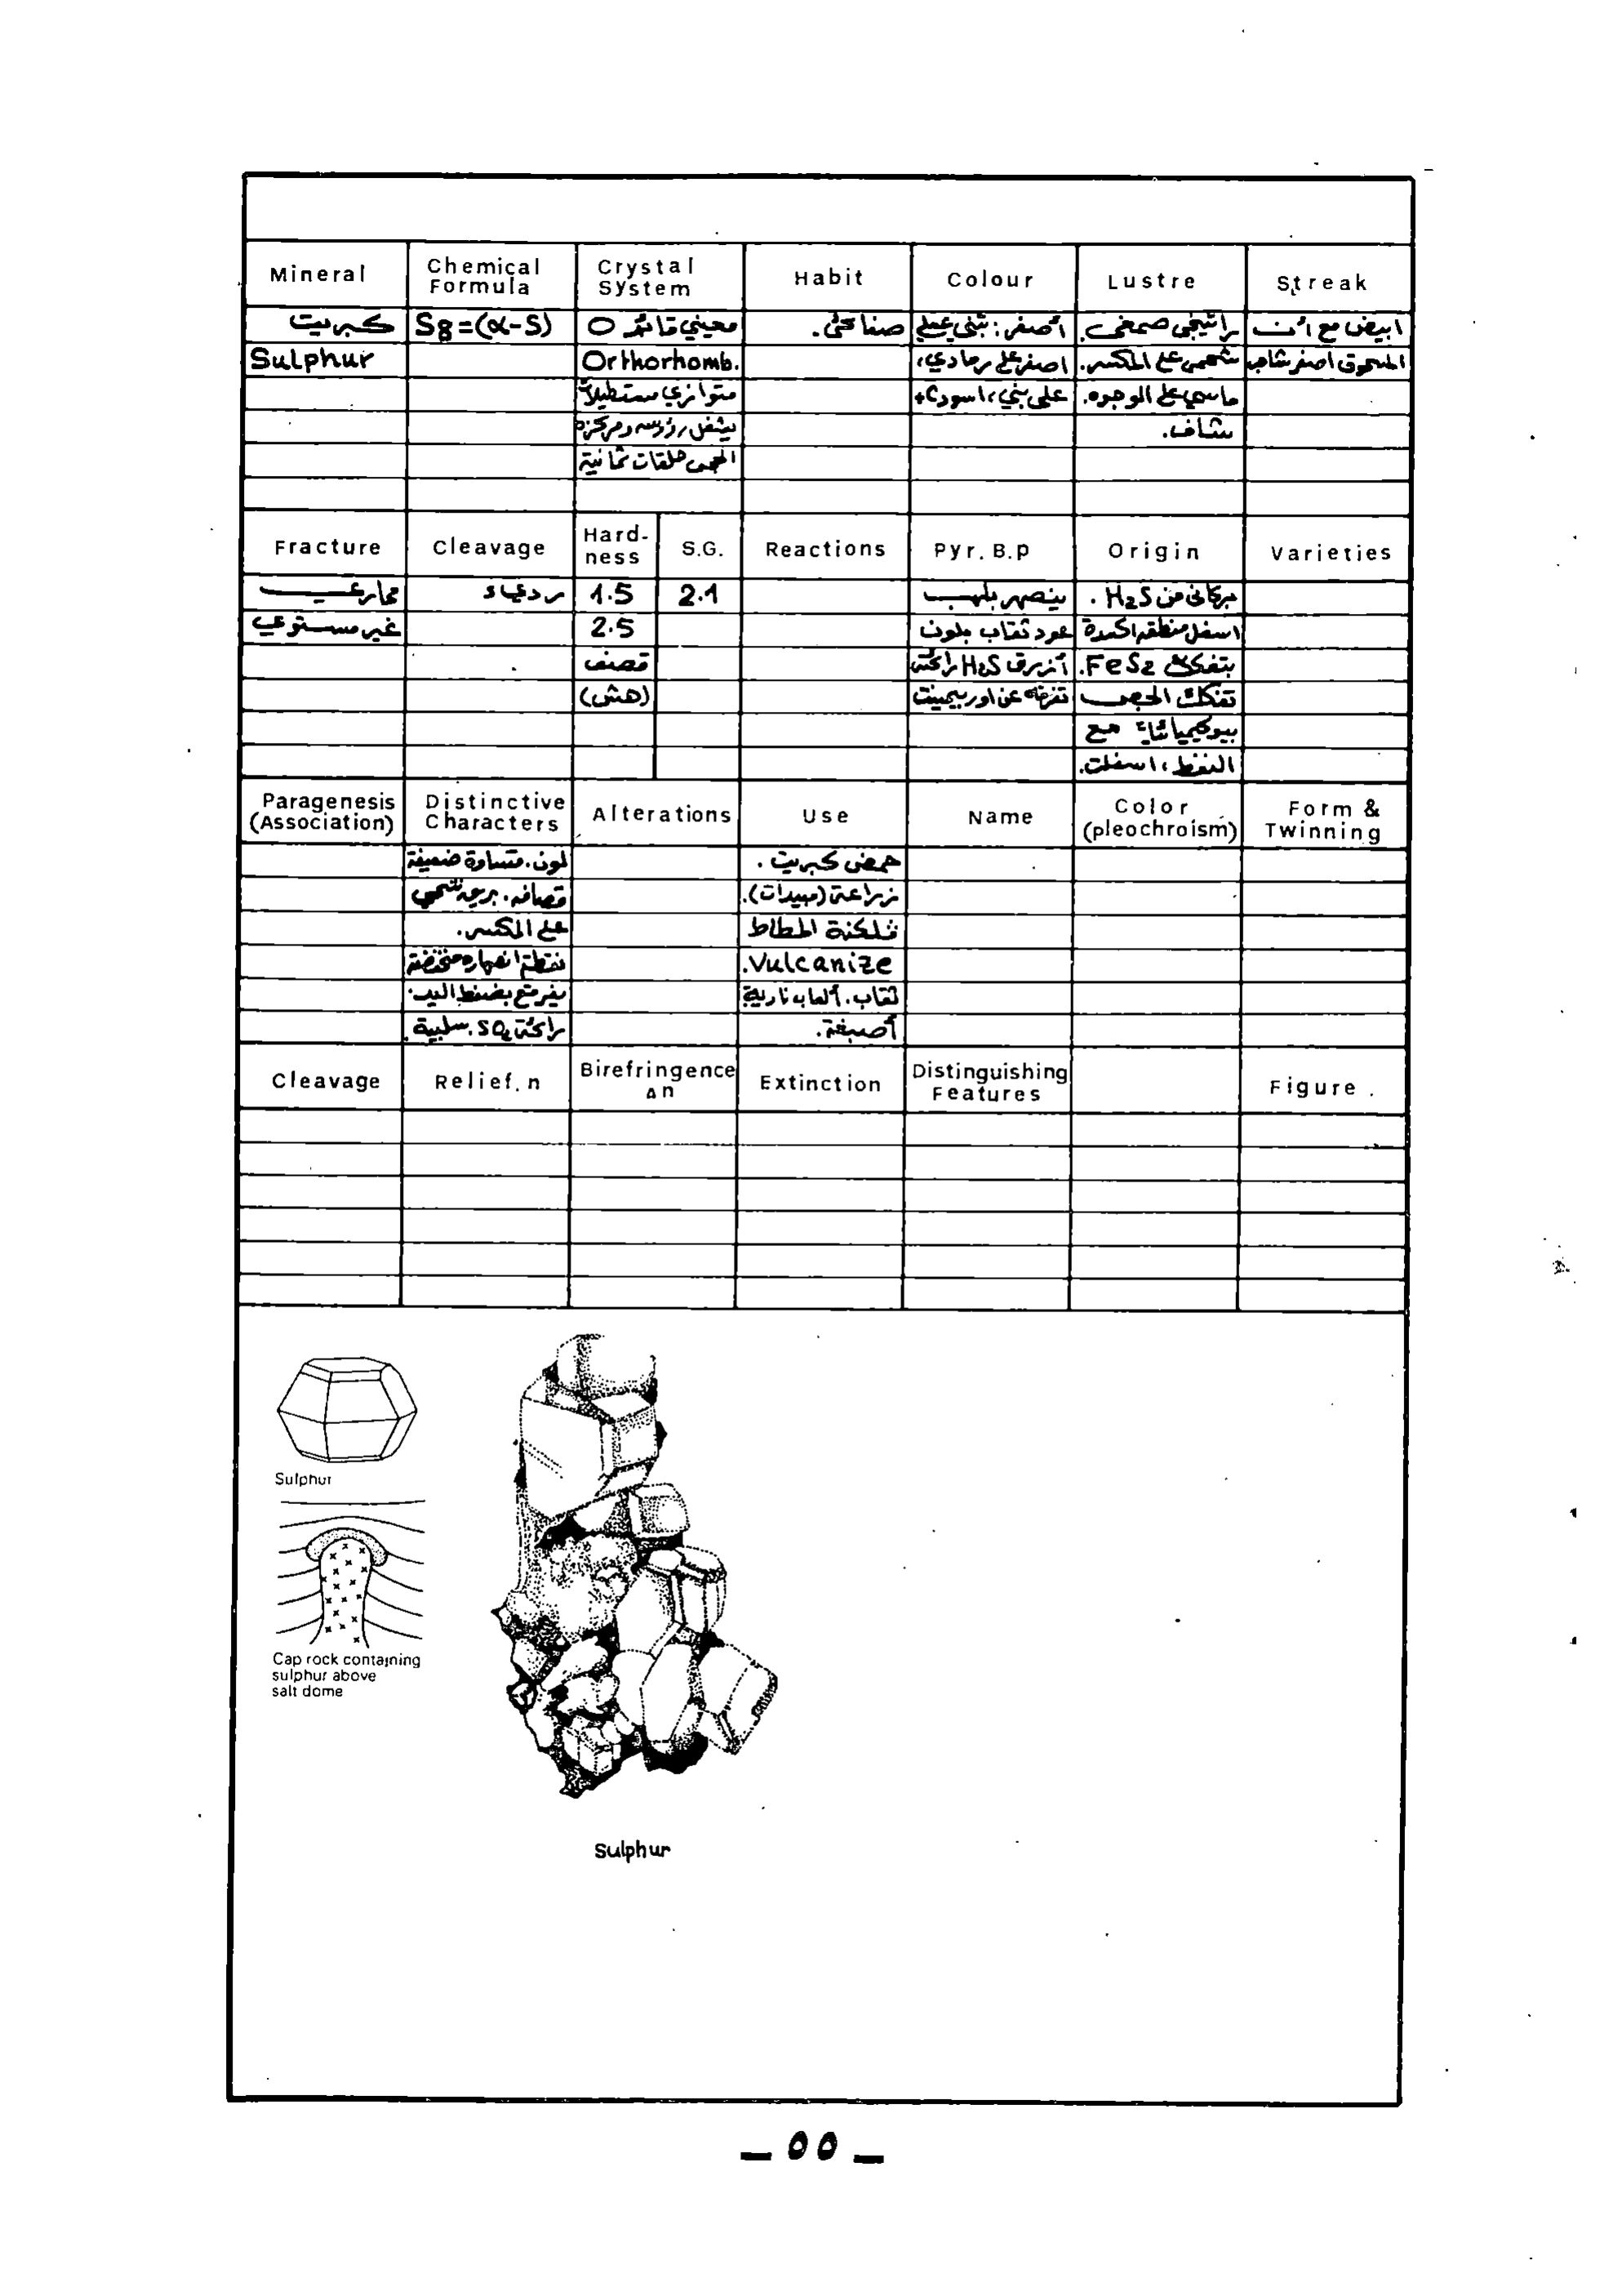 Mineral Chemical Formula Crystal System Habit Colour Lustre Streak
كبريت S8=(α-S) معيني قائم O صفائحي. أصفر: بني عسلي راتنجي صمغي. ابيض مع ان
Sulphur Orthorhomb. اصفر على رمادي، شحمي على المكسر. المسحوق اصفر شاحب
متوازي مستطيلات على بني، اسود C+ ماسي على الوجوه.
يشغل رؤوسه ومركزه شفاف.
الحجمي حلقات ثمانية
Fracture Cleavage Hard-ness S.G. Reactions Pyr. B.p Origin Varieties
محارعي رديء 1.5 2.1 ينصهر بلهب بركاني من H2S .
غير مستوي 2.5 عود ثقاب بلون اسفل منطقة اكسدة
قصف أزرق H2S رائحة بتفكك FeS2.
(هش) عن اوربيمنت تفكك الجص
بيوكيميائيا مع
النفط، اسفلت.
Paragenesis (Association) Distinctive Characters Alterations Use Name Color (pleochroism) Form & Twinning
لون. قساوة ضعيفة حمض كبريت .
قصافه. بريق شحمي زراعة (مبيدات).
على المكسر. فلكنة المطاط
نقطة انصهاره منخفضة Vulcanize.
يفرقع بضغط اليد. ثقاب. ألعاب نارية
رائحة SO2. سلبية. أصبغة.
Cleavage Relief. n Birefringence Δn Extinction Distinguishing Features Figure .
Sulphur
Cap rock containing
sulphur above
salt dome
Sulphur
_ ٥٥ _